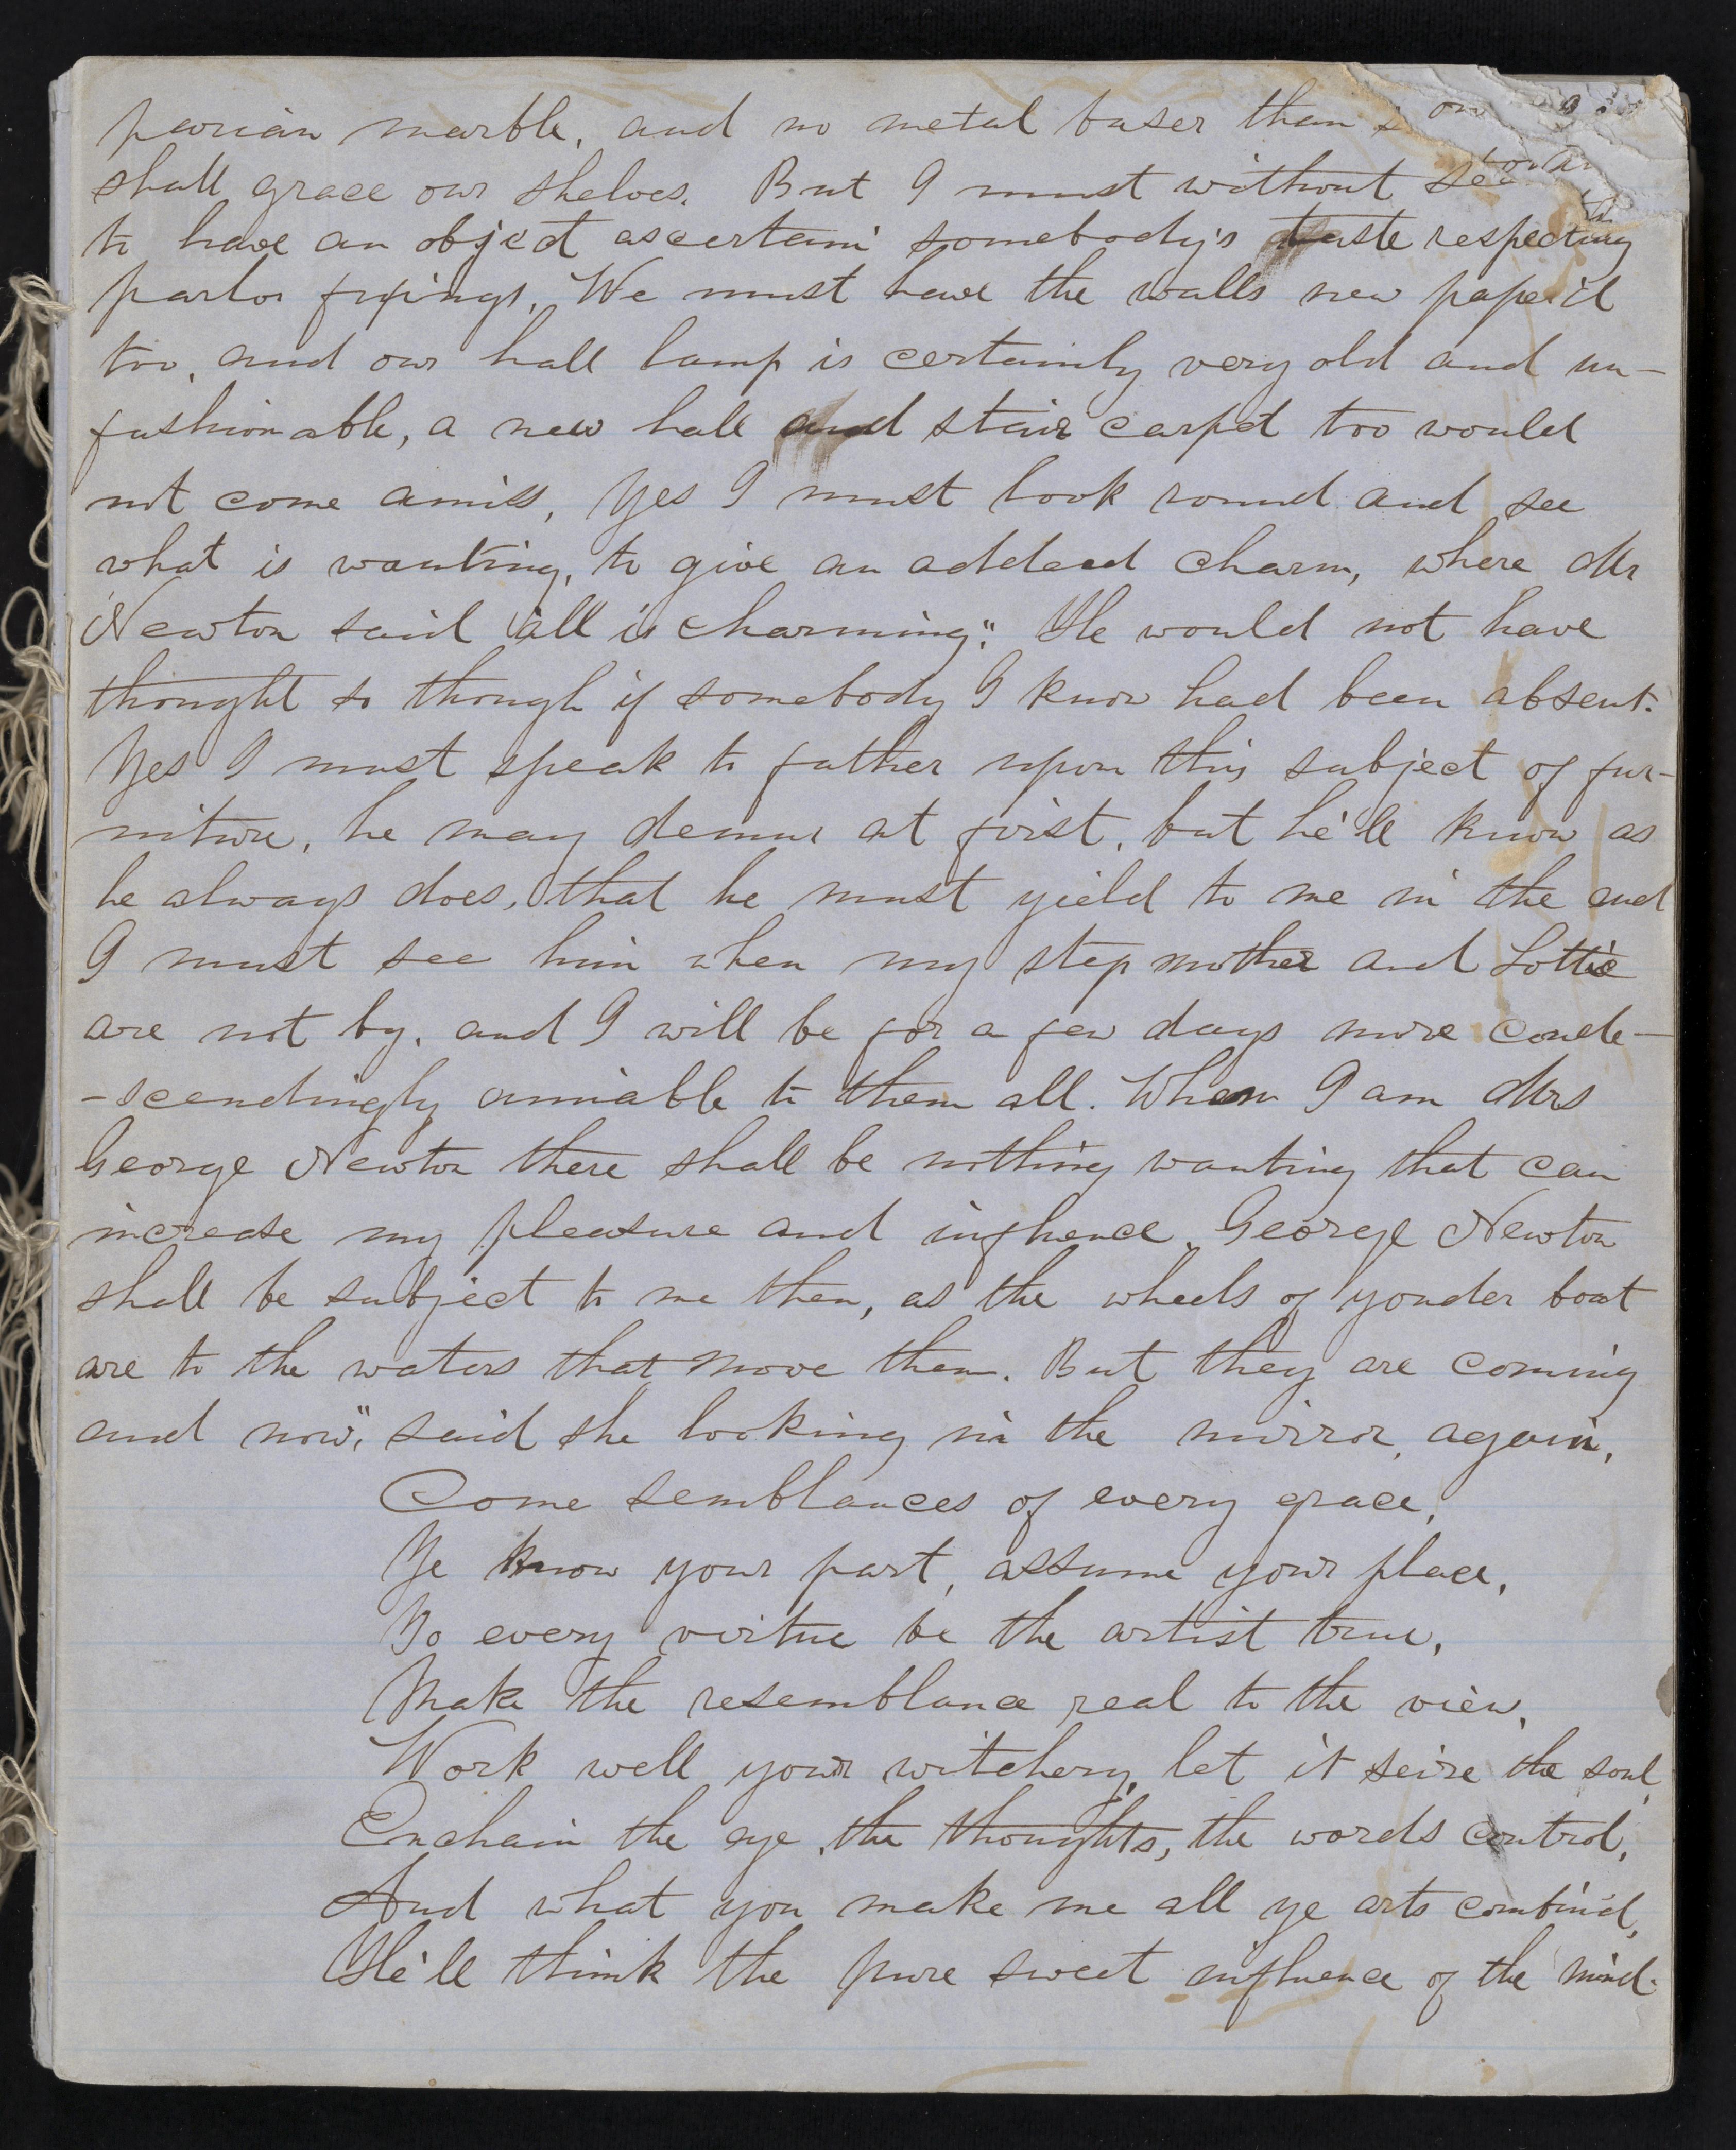 parian marble, and no metal baser than
shall grace our shelves. But I must without
to have an object ascertain somebody's taste respecting
parlor fixings. We must have the walls new paper'd
too, and our hall lamp is certainly very old and un-
fashionable, a new hall and stair carpet too would
not come amiss, Yes I must look round and see
what is wanting, to give an addead charm, where Mr
Newton said "all is charming". He would not have
thought so though if somebody I know had been absent.
Yes I must speak to father upon this subject of fur-
niture, he may demur at first, but he'll know as
he always does, that he must yield to me in the end
I must see him when my step mother and Lottie
are not by, and I will be for a few days more conde-
-scendingly amiable to them all. When I am Mrs
George Newton there shall be nothing wanting that can
increase my pleasure and influence. George Newton
shall be subject to me then, as the wheels of yonder boat
are to the waters that move them. But they are coming
and now", said she looking in the mirror, again,
Come semblances of every grace,
Ye know your part, assume your place,
To every virtue be the artist true,
Make the resemblance real to the view,
Work well your witchery, let it seize the soul,
Enchain the eye, the thoughts, the words control,
And what you make me all ye arts combin'd,
He'll think the pure sweet influence of the mind.